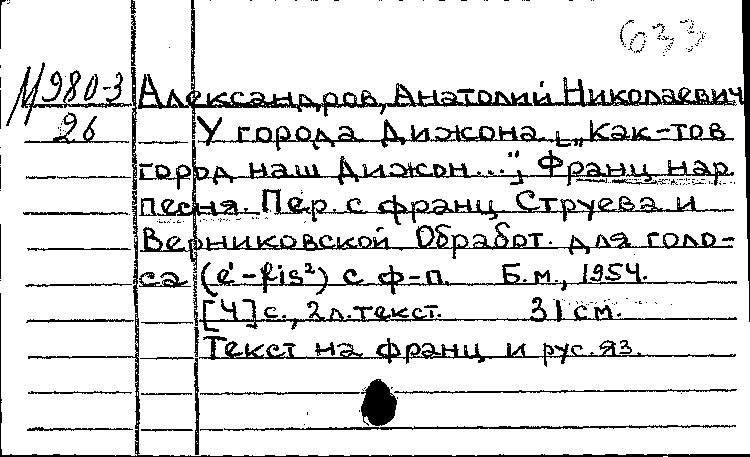 633
М 980-3
26
Александров, Анатолий Николаевич
У города Дижона. [„Как-то в
город наш Дижон..."]. Франц нар.
песня. Пер. с франц Струева и
Верниковской. Обработ. для голо-
са (e¹-fis²) с ф-п. Б.м., 1954.
[4] с., 2 л. текст. 31 см.
Текст на франц и рус. яз.